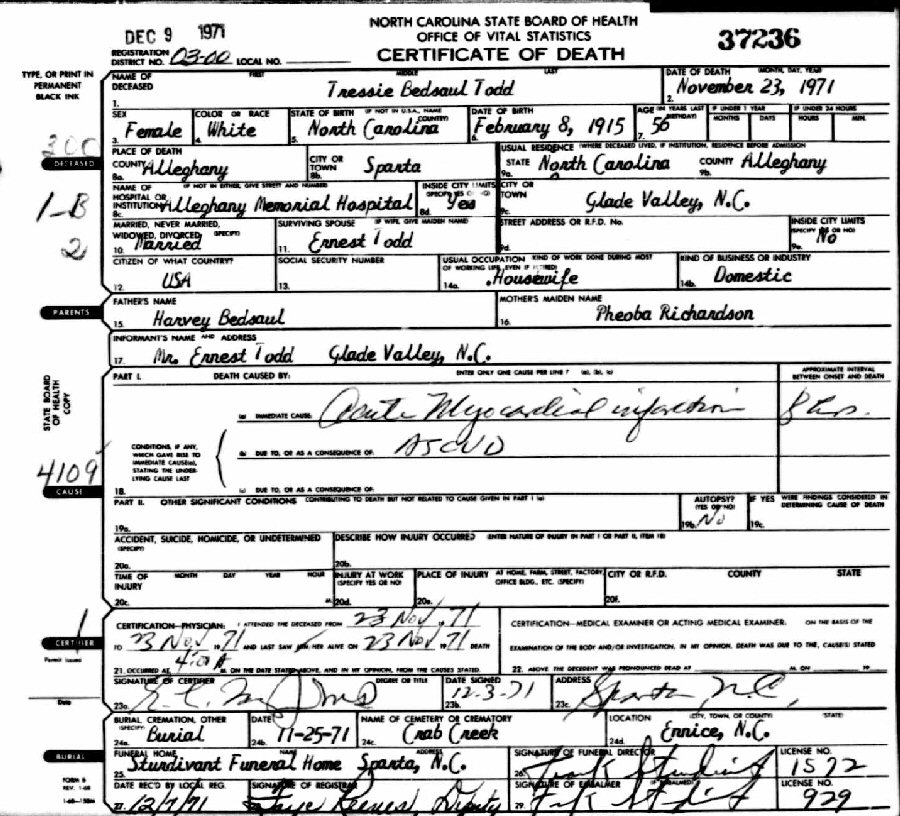 NORTH CAROLINA STATE BOARD OF HEALTH
OFFICE OF VITAL STATISTICS
CERTIFICATE OF DEATH
DEC 9 1971
37236
REGISTRATION DISTRICT NO. 03-00 LOCAL NO.
TYPE, OR PRINT IN PERMANENT BLACK INK
1. NAME OF DECEASED FIRST MIDDLE LAST Tressie Bedsaul Todd
2. DATE OF DEATH (MONTH, DAY, YEAR) November 23, 1971
3. SEX Female
4. COLOR OR RACE White
5. STATE OF BIRTH (IF NOT IN U.S.A., NAME COUNTRY) North Carolina
6. DATE OF BIRTH February 8, 1915
7. AGE (IN YEARS LAST BIRTHDAY) 56 IF UNDER 1 YEAR MONTHS DAYS IF UNDER 24 HOURS HOURS MIN.
300
DECEASED
1-B
2
PLACE OF DEATH
8a. COUNTY Alleghany
8b. CITY OR TOWN Sparta
USUAL RESIDENCE (WHERE DECEASED LIVED, IF INSTITUTION, RESIDENCE BEFORE ADMISSION
9a. STATE North Carolina
9b. COUNTY Alleghany
8c. NAME OF HOSPITAL OR INSTITUTION (IF NOT IN EITHER, GIVE STREET AND NUMBER) Alleghany Memorial Hospital
8d. INSIDE CITY LIMITS (SPECIFY YES OR NO) Yes
9c. CITY OR TOWN Glade Valley, N.C.
10. MARRIED, NEVER MARRIED, WIDOWED, DIVORCED (SPECIFY) Married
11. SURVIVING SPOUSE (IF WIFE, GIVE MAIDEN NAME) Ernest Todd
9d. STREET ADDRESS OR R.F.D. No.
9e. INSIDE CITY LIMITS (SPECIFY YES OR NO) No
12. CITIZEN OF WHAT COUNTRY? USA
13. SOCIAL SECURITY NUMBER
14a. USUAL OCCUPATION (KIND OF WORK DONE DURING MOST OF WORKING LIFE, EVEN IF RETIRED) Housewife
14b. KIND OF BUSINESS OR INDUSTRY Domestic
PARENTS
15. FATHER'S NAME Harvey Bedsaul
16. MOTHER'S MAIDEN NAME Pheoba Richardson
17. INFORMANT'S NAME AND ADDRESS Mr. Ernest Todd Glade Valley, N.C.
STATE BOARD OF HEALTH COPY
PART I. DEATH CAUSED BY: ENTER ONLY ONE CAUSE PER LINE (a), (b), (c)
APPROXIMATE INTERVAL BETWEEN ONSET AND DEATH
(a) IMMEDIATE CAUSE Acute Myocardial infarction 8 hrs.
CONDITIONS, IF ANY, WHICH GAVE RISE TO IMMEDIATE CAUSE(a), STATING THE UNDERLYING CAUSE LAST
(b) DUE TO, OR AS A CONSEQUENCE OF: ASCVD
18. (c) DUE TO, OR AS A CONSEQUENCE OF:
4109
CAUSE
19a. PART II. OTHER SIGNIFICANT CONDITIONS CONTRIBUTING TO DEATH BUT NOT RELATED TO CAUSE GIVEN IN PART I (a)
19b. AUTOPSY? (YES OR NO) No
19c. IF YES WERE FINDINGS CONSIDERED IN DETERMINING CAUSE OF DEATH
20a. ACCIDENT, SUICIDE, HOMICIDE, OR UNDETERMINED (SPECIFY)
20b. DESCRIBE HOW INJURY OCCURRED (ENTER NATURE OF INJURY IN PART I OR PART II, ITEM 18)
20c. TIME OF INJURY MONTH DAY YEAR HOUR M.
20d. INJURY AT WORK (SPECIFY YES OR NO)
20e. PLACE OF INJURY AT HOME, FARM, STREET, FACTORY, OFFICE BLDG., ETC. (SPECIFY)
20f. CITY OR R.F.D. COUNTY STATE
1
CERTIFIER
Permit issued
Date
CERTIFICATION—PHYSICIAN: I ATTENDED THE DECEASED FROM 23 Nov. 71
TO 23 Nov 1971 AND LAST SAW HER ALIVE ON 23 Nov 1971 DEATH
21. OCCURRED AT 4:00 A M. ON THE DATE STATED ABOVE, AND IN MY OPINION, FROM THE CAUSES STATED.
CERTIFICATION—MEDICAL EXAMINER OR ACTING MEDICAL EXAMINER. ON THE BASIS OF THE
EXAMINATION OF THE BODY AND/OR INVESTIGATION, IN MY OPINION, DEATH WAS DUE TO THE CAUSE(S) STATED
22. ABOVE THE DECEDENT WAS PRONOUNCED DEAD AT M. ON 19
23a. SIGNATURE OF CERTIFIER DEGREE OR TITLE
23b. DATE SIGNED 12-3-71
23c. ADDRESS Sparta, N.C.
24a. BURIAL, CREMATION, OTHER (SPECIFY) Burial
24b. DATE 11-25-71
24c. NAME OF CEMETERY OR CREMATORY Crab Creek
24d. LOCATION (CITY, TOWN, OR COUNTY) (STATE) Ennice, N.C.
BURIAL
25. FUNERAL HOME NAME ADDRESS Sturdivant Funeral Home Sparta, N.C.
26. SIGNATURE OF FUNERAL DIRECTOR Frank Sturdivant
LICENSE NO. 1572
FORM 8
REV. 1-68
27. DATE REC'D BY LOCAL REG. 12/7/71
SIGNATURE OF REGISTRAR Faye Reeves, Deputy
29. SIGNATURE OF EMBALMER
LICENSE NO. 929